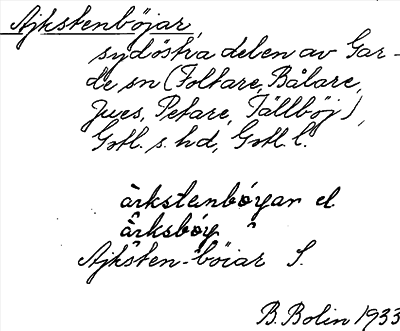 Ajkstenböjar,
sydöstra delen av Gar-
de sn (Foltare, Bålare,
Jues, Petare, Tällböj),
Gotl. s. hd, Gotl. l.
ärkstenbóyar el
ärksbóy
Ajksten-böiar S.
B. Bolin 1933